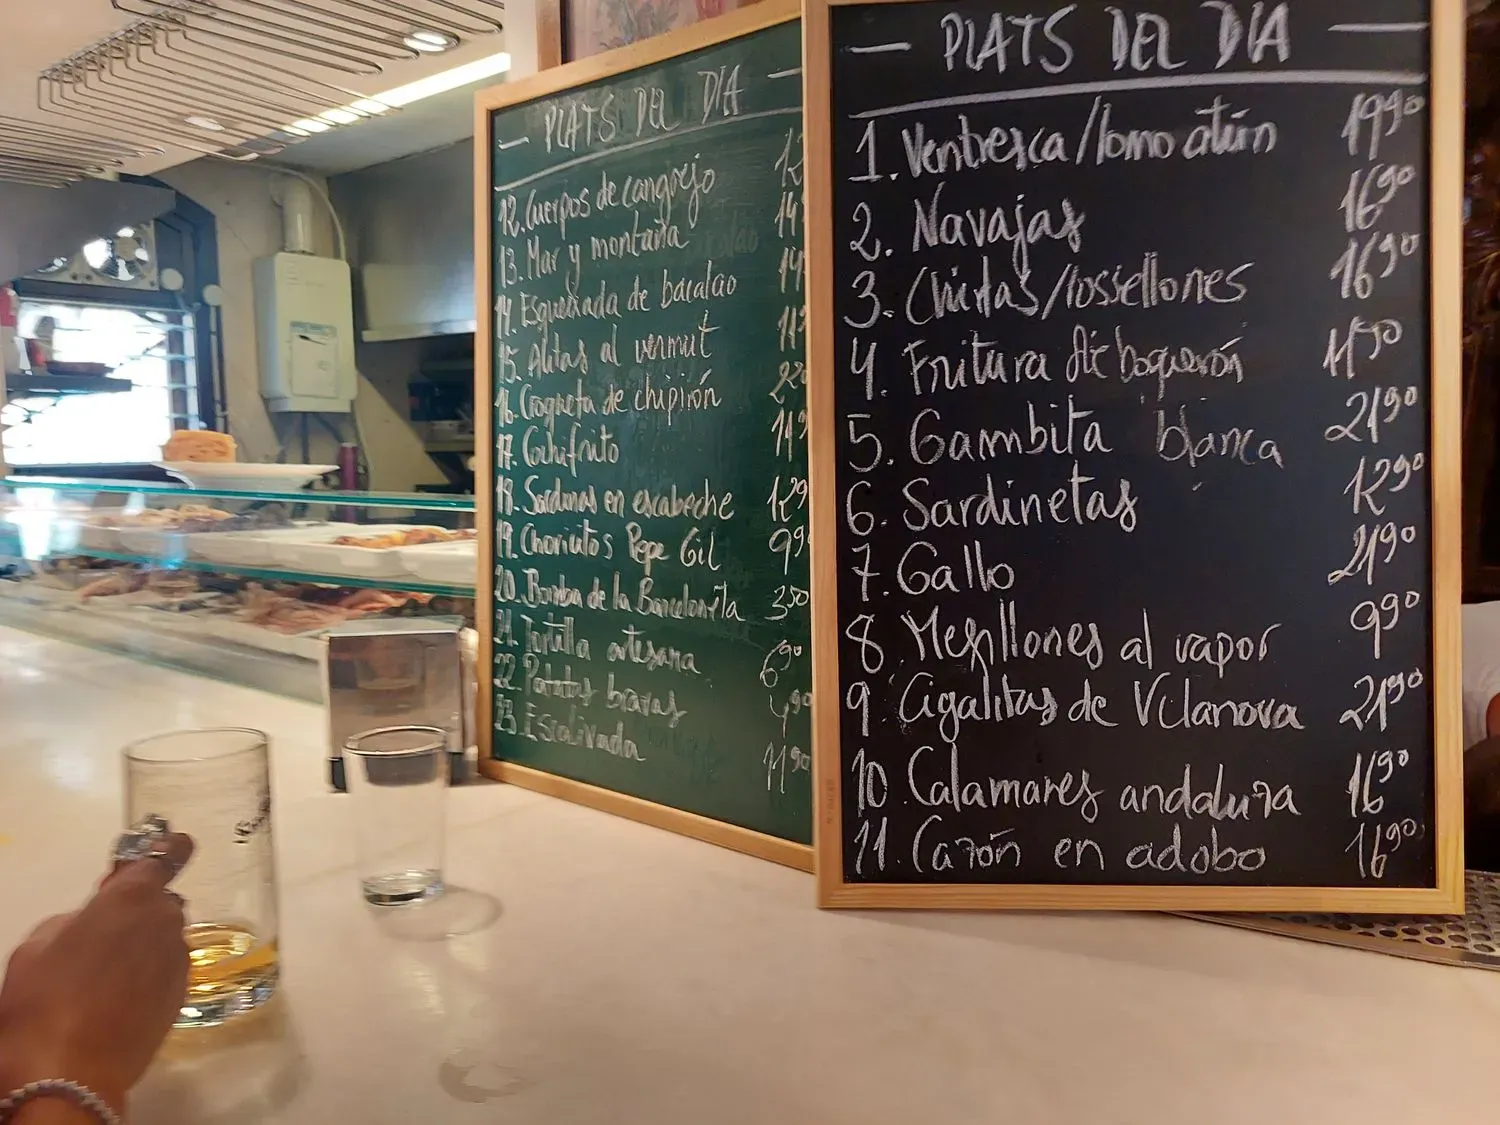 — PLATS DEL DIA —
12. Cuerpos de cangrejo 12
13. Mar y montaña 14
14. Esqueixada de bacalao 14
15. Alitas al vermut 11
16. Croqueta de chipirón 2
17. Cochifrito 119
18. Sardinas en escabeche 129
19. Choricitos Pepe Gil 99
20. Bomba de la Barceloneta 350
21. Tortilla artesana 690
22. Patatas bravas 490
23. Escalivada 1190
— PLATS DEL DIA —
1. Ventresca/lomo atún 1990
2. Navajas 1690
3. Chirlas/rossellones 1690
4. Fritura de boquerón 1190
5. Gambita blanca 2190
6. Sardinetas 1290
7. Gallo 2190
8. Mejillones al vapor 990
9. Cigalitas de Vilanova 2190
10. Calamares andaluza 1690
11. Cazón en adobo 1690